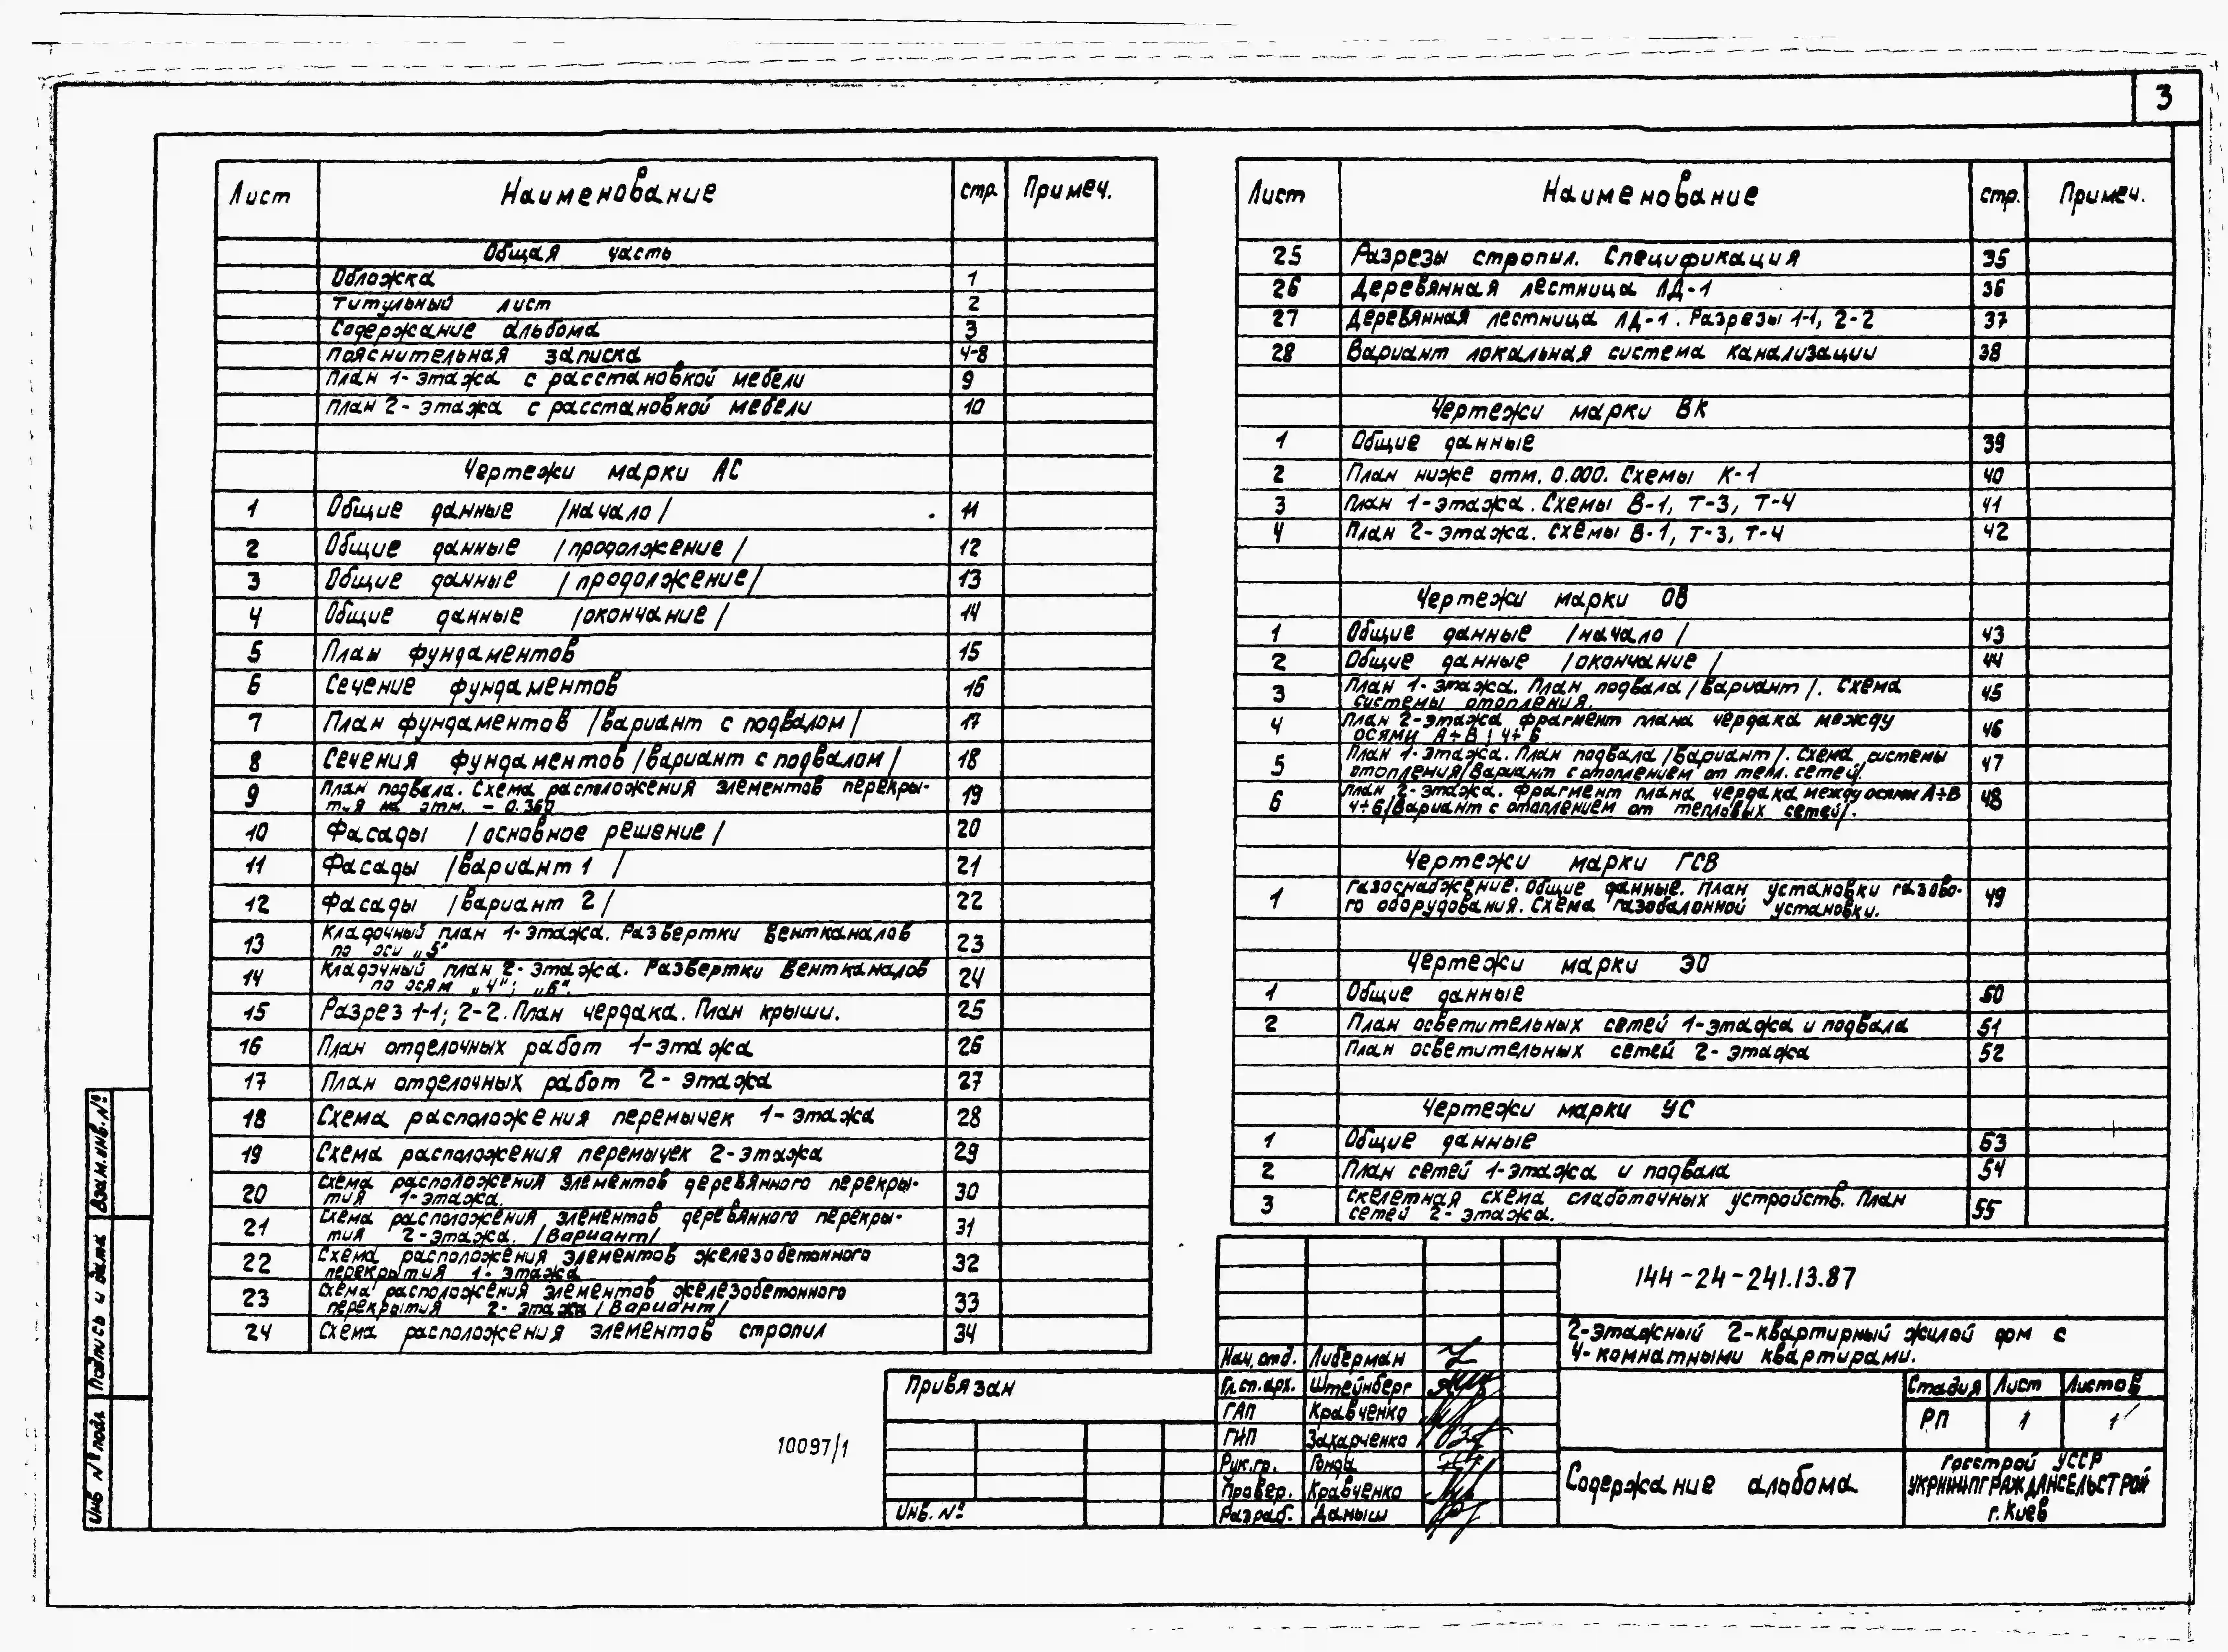 3
Лист Наименование стр. Примеч.
Общая часть
Обложка 1
Титульный лист 2
Содержание альбома 3
Пояснительная записка 4-8
План 1-этажа с расстановкой мебели 9
План 2-этажа с расстановкой мебели 10
Чертежи марки АС
1 Общие данные /начало/ 11
2 Общие данные /продолжение/ 12
3 Общие данные /продолжение/ 13
4 Общие данные /окончание/ 14
5 План фундаментов 15
6 Сечение фундаментов 16
7 План фундаментов /вариант с подвалом/ 17
8 Сечения фундаментов /вариант с подвалом/ 18
9 План подвала. Схема расположения элементов перекры-
тия на отм. -0.360 19
10 Фасады /основное решение/ 20
11 Фасады /вариант 1/ 21
12 Фасады /вариант 2/ 22
13 Кладочный план 1-этажа. Развертки вентканалов
по оси „5" 23
14 Кладочный план 2-этажа. Развертки вентканалов
по осям „4"; „6". 24
15 Разрез 1-1; 2-2. План чердака. План крыши. 25
16 План отделочных работ 1-этажа 26
17 План отделочных работ 2-этажа 27
18 Схема расположения перемычек 1-этажа 28
19 Схема расположения перемычек 2-этажа 29
20 Схема расположения элементов деревянного перекры-
тия 1-этажа. 30
21 Схема расположения элементов деревянного перекры-
тия 2-этажа. /Вариант/ 31
22 Схема расположения элементов железобетонного
перекрытия 1-этажа 32
23 Схема расположения элементов железобетонного
перекрытия 2-этажа /Вариант/ 33
24 Схема расположения элементов стропил 34
Лист Наименование стр. Примеч.
25 Разрезы стропил. Спецификация 35
26 Деревянная лестница ЛД-1 36
27 Деревянная лестница ЛД-1. Разрезы 1-1, 2-2 37
28 Вариант локальная система канализации 38
Чертежи марки ВК
1 Общие данные 39
2 План ниже отм. 0.000. Схемы К-1 40
3 План 1-этажа. Схемы В-1, Т-3, Т-4 41
4 План 2-этажа. Схемы В-1, Т-3, Т-4 42
Чертежи марки ОВ
1 Общие данные /начало/ 43
2 Общие данные /окончание/ 44
3 План 1-этажа. План подвала /вариант/. Схема
системы отопления. 45
4 План 2-этажа фрагмент плана чердака между
осями А÷В; 4÷6 46
5 План 1-этажа. План подвала /Вариант/. Схема системы
отопления /Вариант с отоплением от тепл. сетей/. 47
6 План 2-этажа. Фрагмент плана чердака между осями А÷В
4÷6 /Вариант с отоплением от тепловых сетей/. 48
Чертежи марки ГСВ
1 Газоснабжение. Общие данные. План установки газово-
го оборудования. Схема газобалонной установки. 49
Чертежи марки ЭО
1 Общие данные 50
2 План осветительных сетей 1-этажа и подвала 51
План осветительных сетей 2-этажа 52
Чертежи марки УС
1 Общие данные 53
2 План сетей 1-этажа и подвала 54
3 Скелетная схема слаботочных устройств. План
сетей 2-этажа. 55
144-24-241.13.87
2-этажный 2-квартирный жилой дом с
4-комнатными квартирами.
Нач. отд. Либерман
Гл.сп.арх. Штейнберг
ГАП Кравченко
ГИП Захарченко
Рук.гр. Гонда
Провер. Кравченко
Разраб. Даныш
Стадия Лист Листов
РП 1 1
Содержание альбома.
Госстрой УССР
УКРНИИПГРАЖДАНСЕЛЬСТРОЙ
г. Киев
Привязан
Инв. №
10097/1
Взам. инв. №
Подпись и дата
Инв № подл